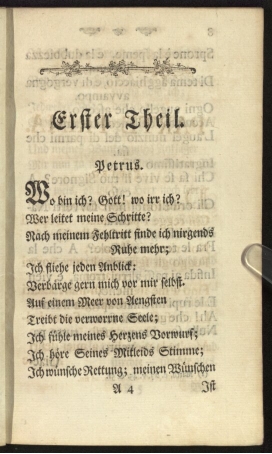 Erster Theil.
Petrus.
Wo bin ich? Gott! wo irr ich?
Wer leitet meine Schritte?
Nach meinem Fehltritt finde ich nirgends
Ruhe mehr;
Ich fliehe jeden Anblick:
Verbärge gern mich vor mir selbst.
Auf einem Meer von Aengsten
Treibt die verworrne Seele;
Ich fühle meines Herzens Vorwurf;
Ich höre Seines Mitleids Stimme;
Ich wünsche Rettung; meinen Wünschen
A 4 Ist